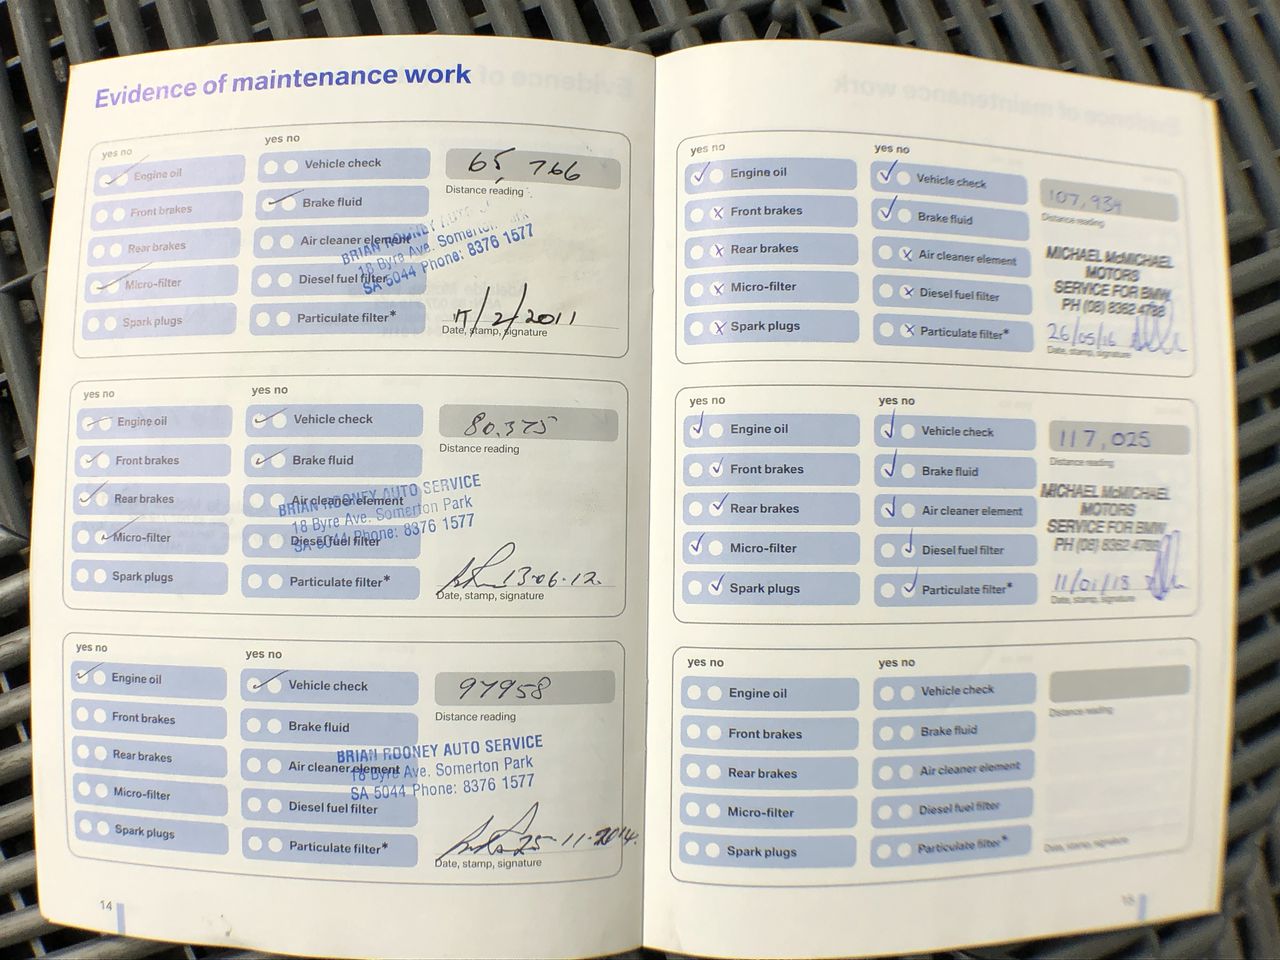 Evidence of maintenance work
yes no
yes no
Engine oil
Vehicle check
65,766
Distance reading
Front brakes
Brake fluid
Rear brakes
Air cleaner element
BRIAN ROONEY AUTO
18 Byre Ave. Somerton
SA 5044 Phone: 8376 1577
Micro-filter
Diesel fuel filter
Spark plugs
Particulate filter*
/2/2011
Date, stamp, signature
yes no
yes no
Engine oil
Vehicle check
80.375
Distance reading
Front brakes
Brake fluid
Rear brakes
Air cleaner element
BRIAN ROONEY AUTO SERVICE
18 Byre Ave. Somerton Park
SA 5044 Phone: 8376 1577
Micro-filter
Diesel fuel filter
Spark plugs
Particulate filter*
13.06.12.
Date, stamp, signature
yes no
yes no
Engine oil
Vehicle check
97958
Distance reading
Front brakes
Brake fluid
Rear brakes
Air cleaner element
BRIAN ROONEY AUTO SERVICE
18 Byre Ave. Somerton Park
SA 5044 Phone: 8376 1577
Micro-filter
Diesel fuel filter
Spark plugs
Particulate filter*
25-11-2014.
Date, stamp, signature
14
yes no
yes no
Engine oil
Vehicle check
107,934
Distance reading
Front brakes
Brake fluid
Rear brakes
Air cleaner element
MICHAEL McMICHAEL
MOTORS
SERVICE FOR BMW
PH (08) 8362 4788
Micro-filter
Diesel fuel filter
Spark plugs
Particulate filter*
26/05/16
Date, stamp, signature
yes no
yes no
Engine oil
Vehicle check
117,025
Distance reading
Front brakes
Brake fluid
Rear brakes
Air cleaner element
MICHAEL McMICHAEL
MOTORS
SERVICE FOR BMW
PH (08) 8362 4788
Micro-filter
Diesel fuel filter
Spark plugs
Particulate filter*
11/01/18
Date, stamp, signature
yes no
yes no
Engine oil
Vehicle check
Distance reading
Front brakes
Brake fluid
Rear brakes
Air cleaner element
Micro-filter
Diesel fuel filter
Spark plugs
Particulate filter*
Date, stamp, signature